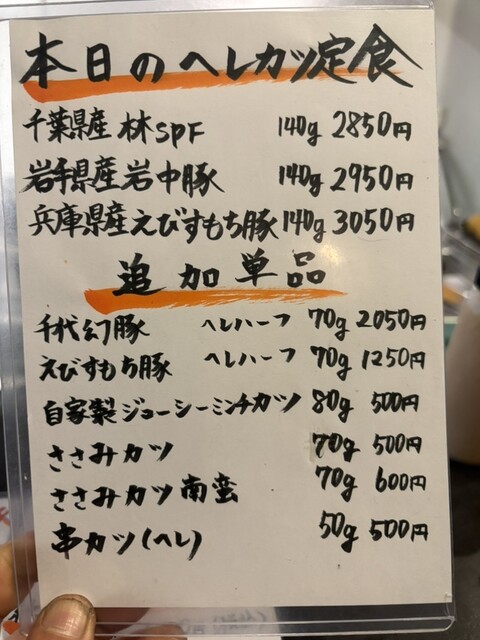 本日のヘレカツ定食
千葉県産 林SPF 140g 2850円
岩手県産岩中豚 140g 2950円
兵庫県産えびすもち豚 140g 3050円
追加単品
千代幻豚 ヘレハーフ 70g 2050円
えびすもち豚 ヘレハーフ 70g 1250円
自家製ジューシーミンチカツ 80g 500円
ささみカツ 70g 500円
ささみカツ南蛮 70g 600円
串カツ(ヘレ) 50g 500円